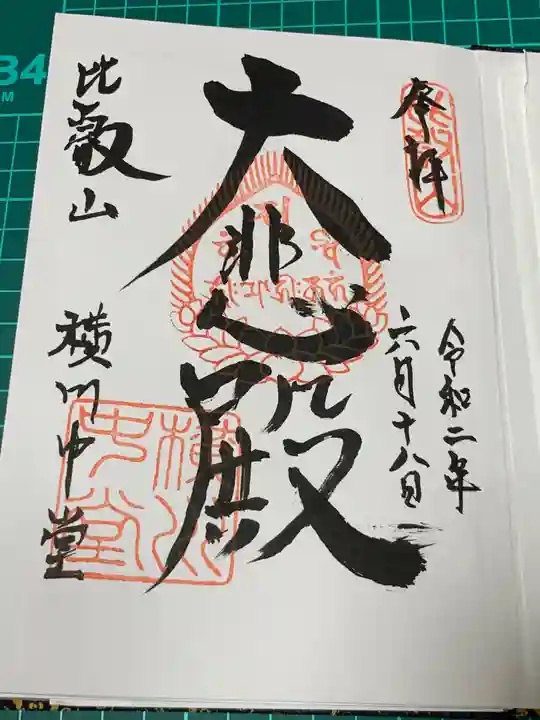 奉拝
令和二年
六月十八日
大悲殿
比叡山
横川中堂
横川
中堂
34
M